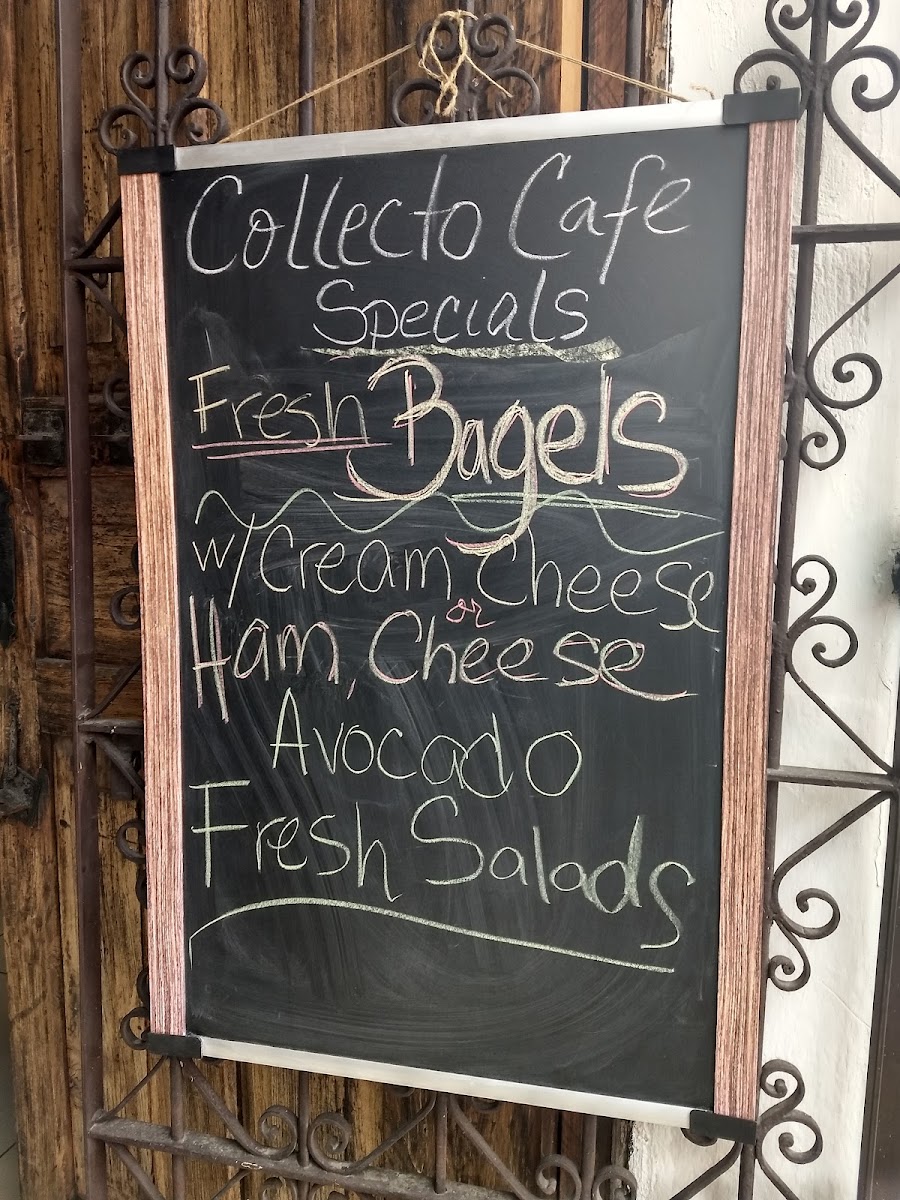 Collecto Cafe
Specials
Fresh Bagels
w/ Cream Cheese
or
Ham, Cheese
Avocado
Fresh Salads